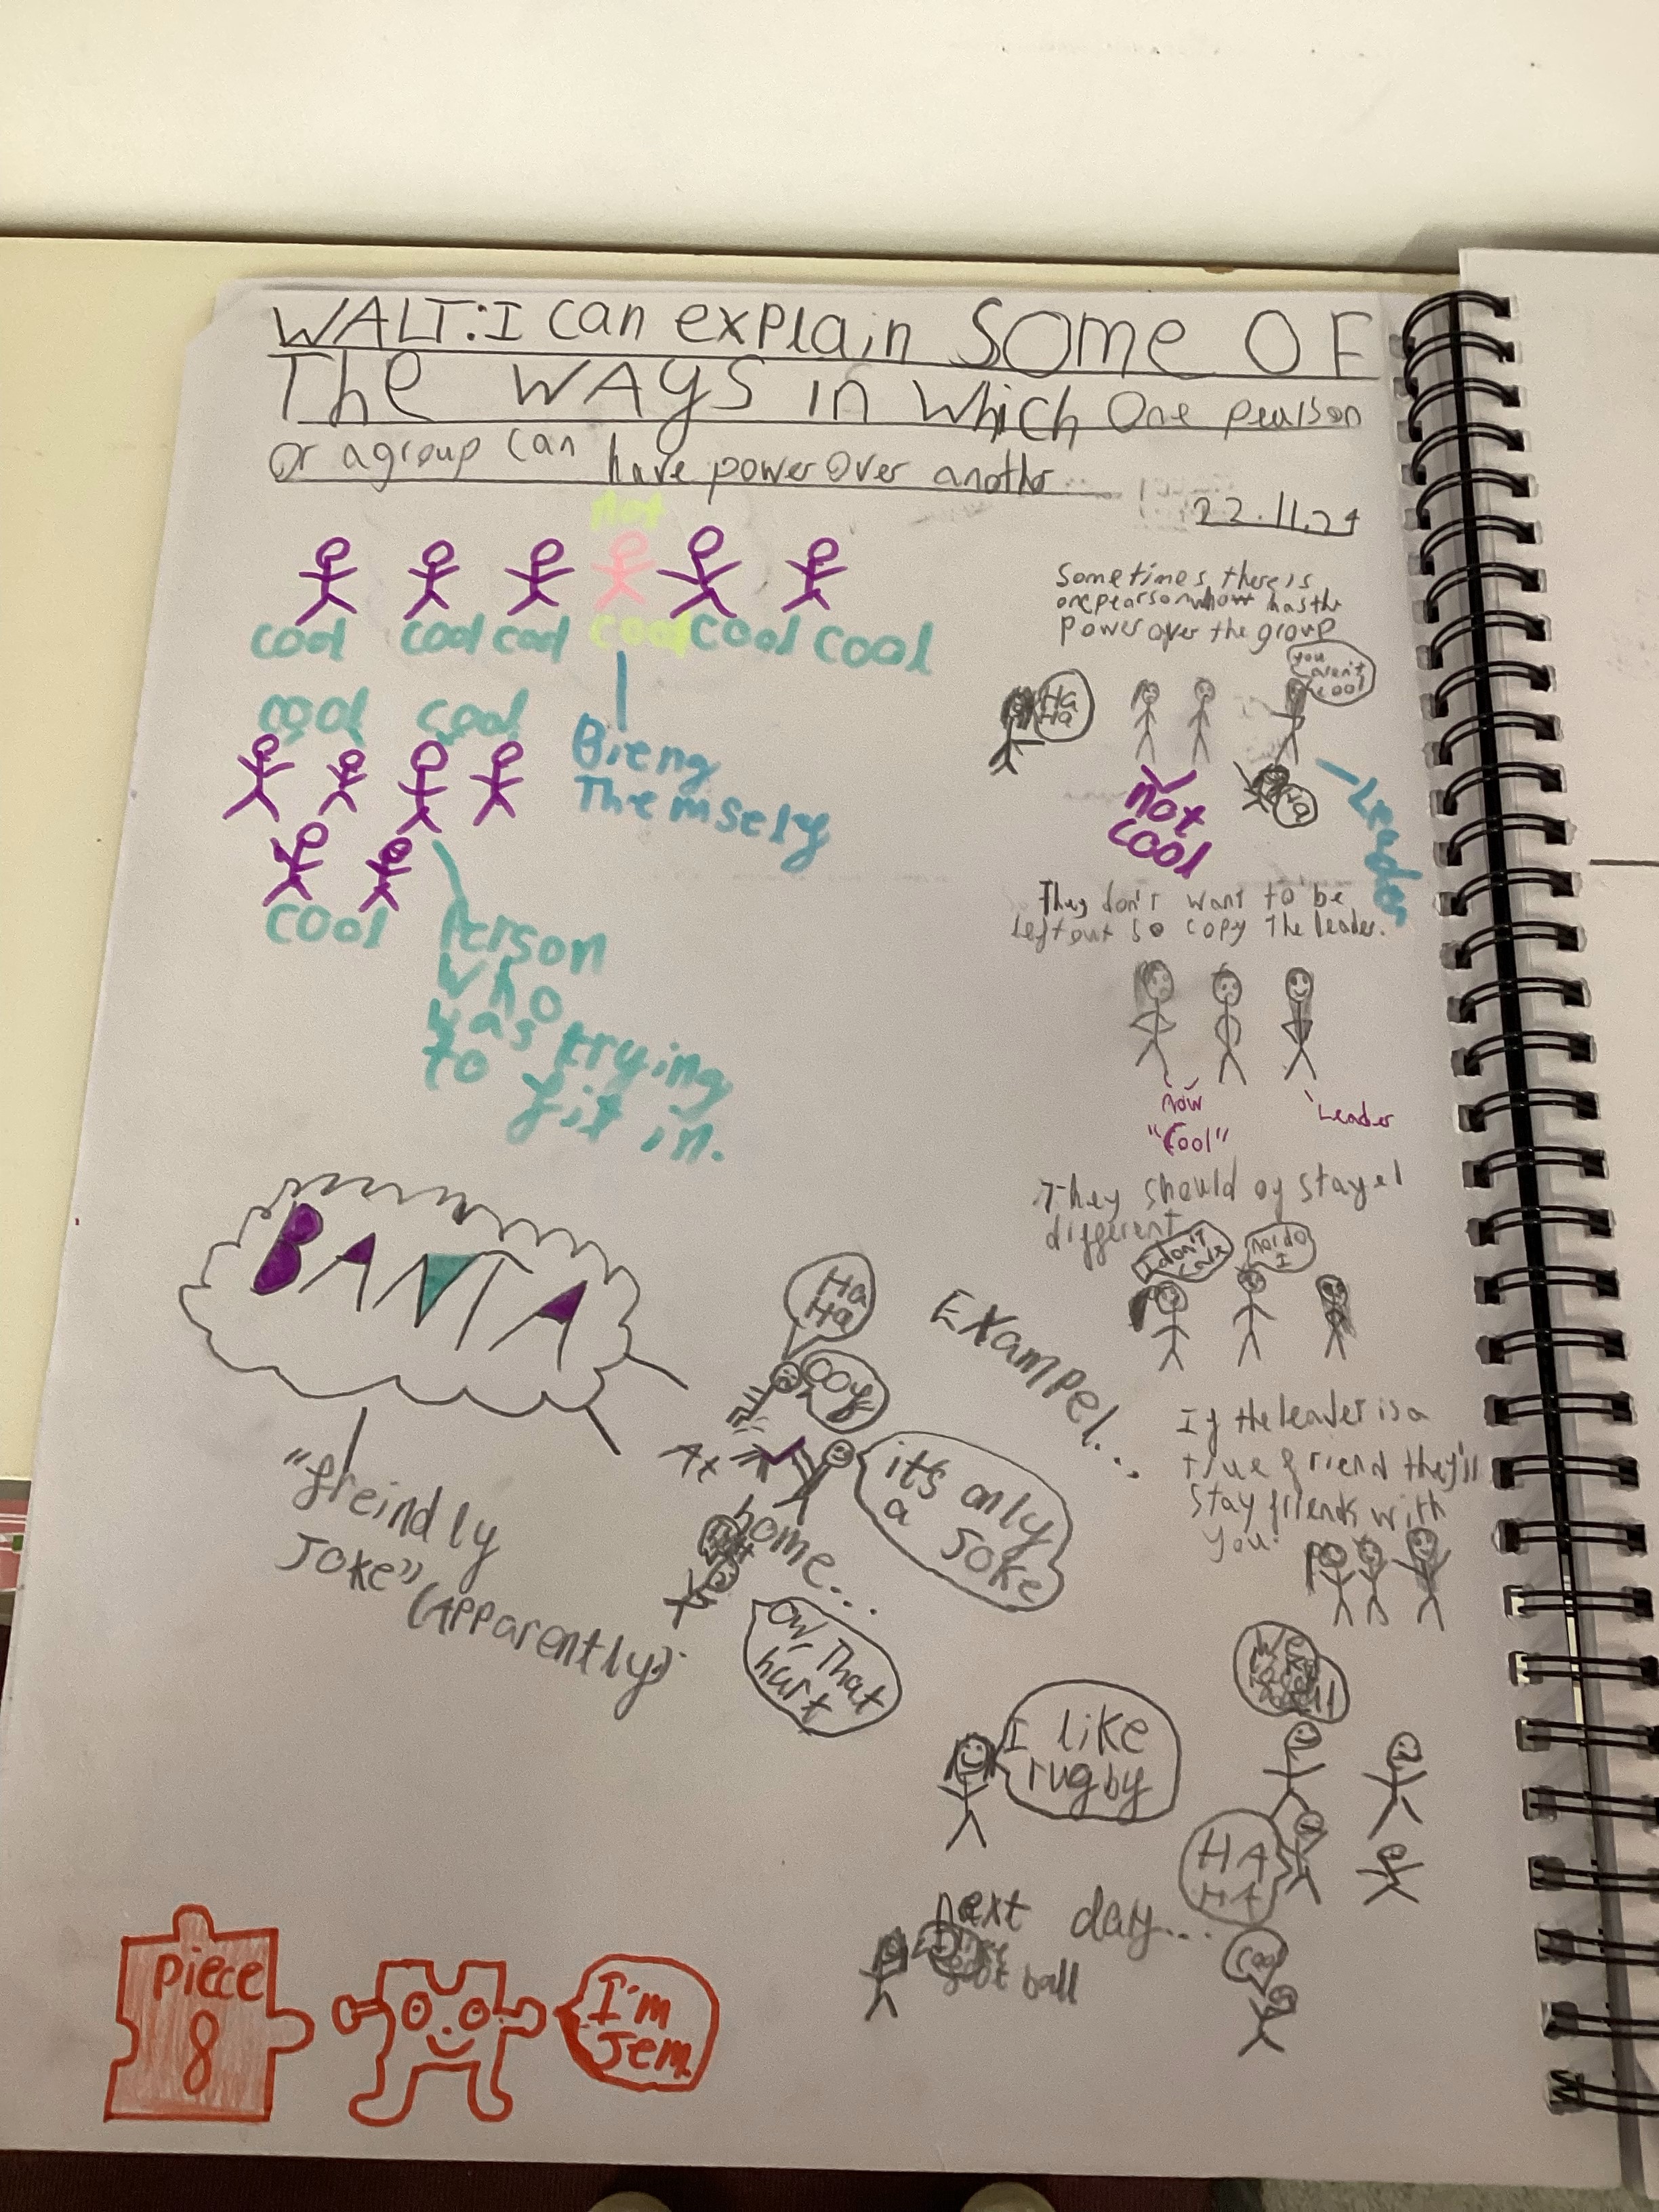 WALT: I can explain SOME OF
The WAYS in which One pearson
or a group can have power over another
22.11.24
not
cool cool cool cool cool cool
Bieng
Themselfs
cool cool
cool
Person
who
was trying
to fit in.
Sometimes there is
one pearson who has the
power over the group
you
aren't
cool
Ha
Ha
Ha
not
cool
Leader
They don't want to be
left out so copy the leader.
now
"Cool"
Leader
They should of stayed
different
I don't
care
nor do
I
If the leader is a
true friend they'll
stay friends with
you.
BANTA
"freindly
Joke" (Apparently)
Ha
Ha
ooy
it's only
a Joke
At
home...
ow, That
hurt
Exampel...
I like
rugby
HA
HA
next day...
foot ball
cool
piece
8
I'm
Jem.